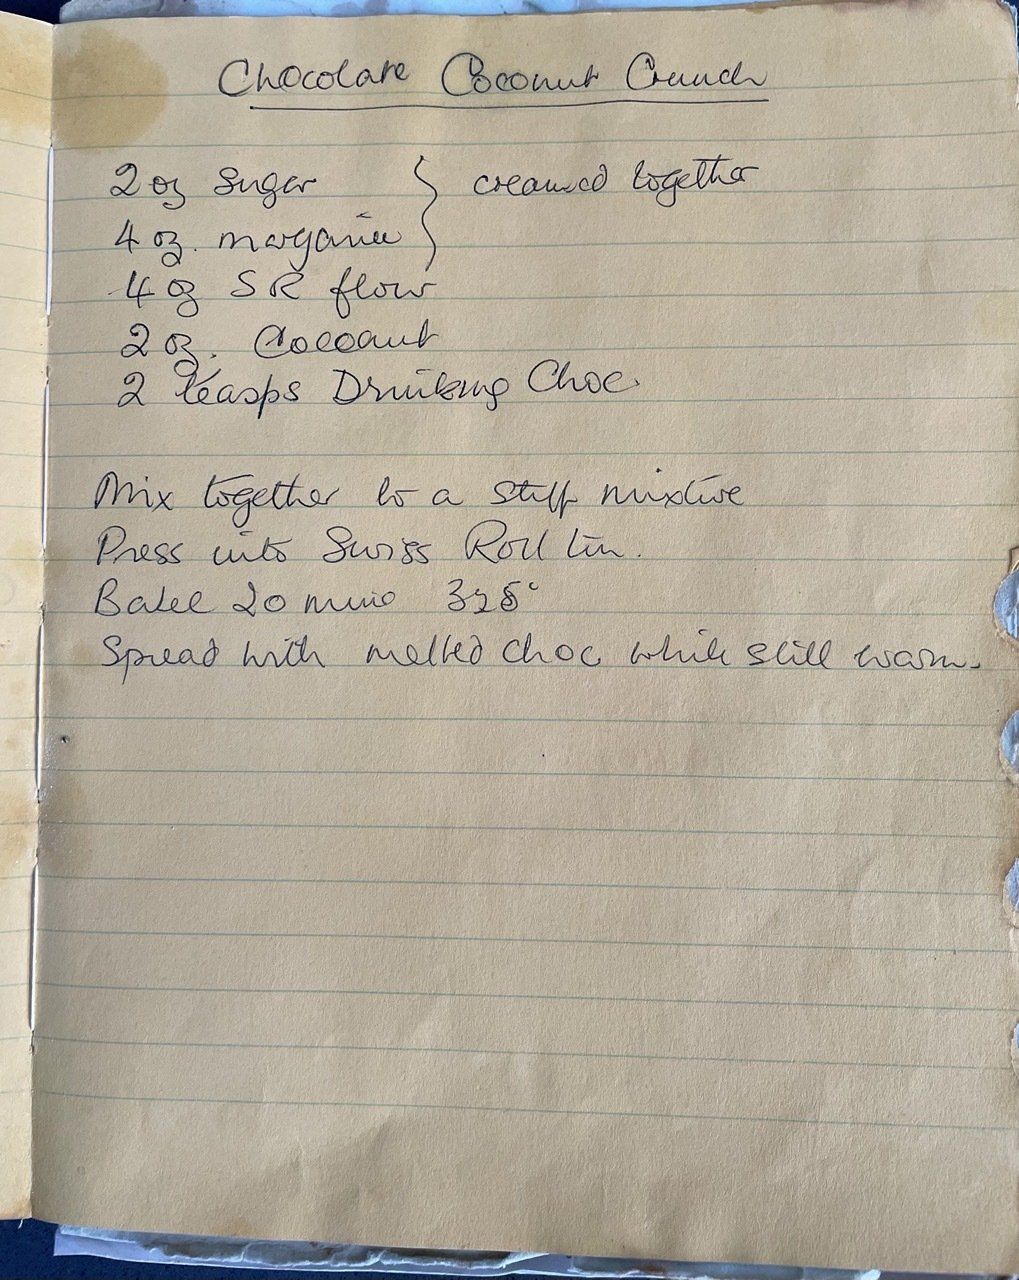 Chocolate Coconut Crunch
2 oz Sugar } creamed together
4 oz. margarine
4 oz SR flour
2 oz. Coconut
2 teasps Drinking Choc.
Mix together to a stiff mixture
Press into Swiss Roll tin.
Bake 20 mins 325°
Spread with melted choc while still warm.